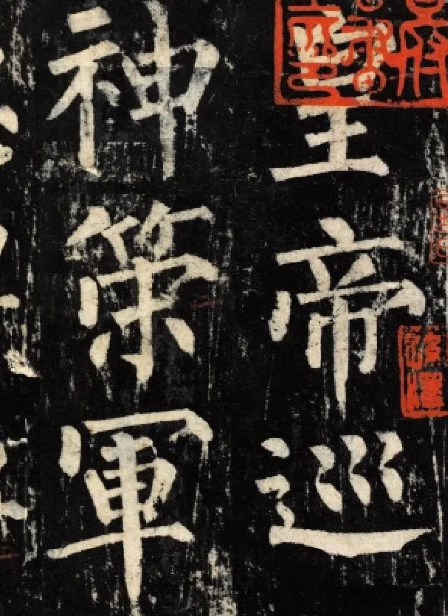 皇帝巡
神策軍